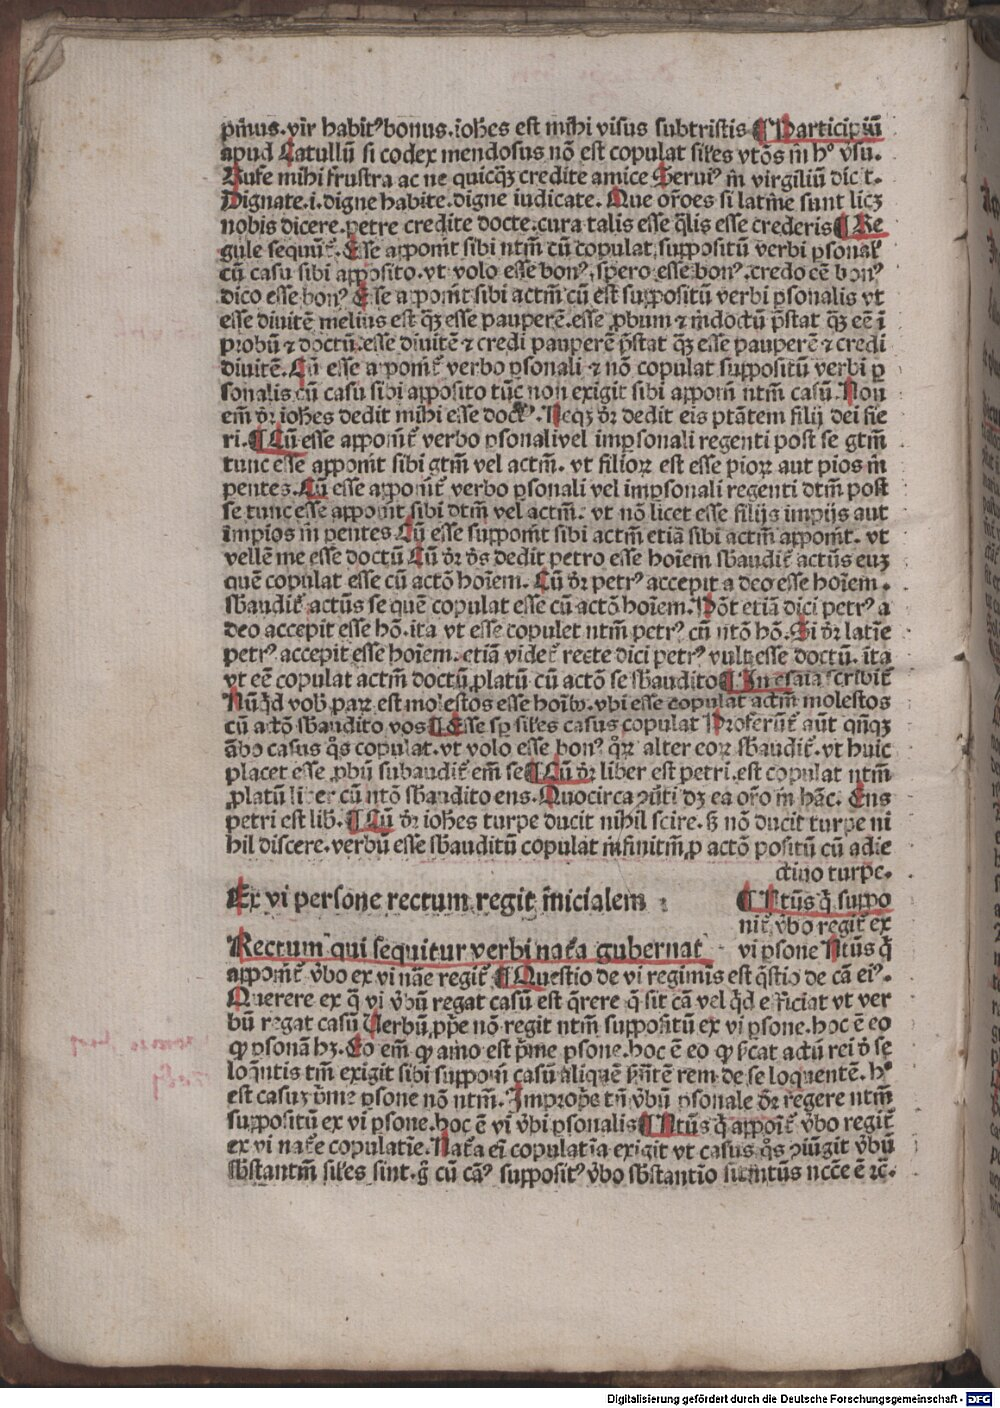 pͥmus. vir habitꝰ bonus. ioh̄es est mihi visus subtristis ¶ Participiū
apud Catullū si codex mendosus nō est copulat sil̄es vtōs in hᵒ v̄su.
Rufe mihi frustra ac ne quicq̄ꝫ credite amice Seruiꝰ in virgiliū dicit.
Dignate .i. digne habite. digne iudicate. Que or̄oes si latine sunt licꝫ
nobis dicere. petre credite docte. cura talis esse q̄lis esse crederis ¶ Re
gule sequūt̄. Esse apponit sibi ntm̄ cū copulat suppositū verbi ꝑsonal̄
cū casu sibi apposito. vt volo esse bonꝰ. spero esse bonꝰ. credo eē bonꝰ
dico esse bonꝰ Esse apponit sibi actm̄ cū est suppositū verbi ꝑsonalis vt
esse diuitē melius est q̄ꝫ esse pauperē. esse ꝓbum ⁊ indoctū p̄stat q̄ꝫ eē ī
probū ⁊ doctū. esse diuitē ⁊ credi pauperē p̄stat q̄ꝫ esse pauperē ⁊ credi
diuitē. Cū esse apponit̄ verbo ꝑsonali ⁊ nō copulat suppositū verbi ꝑ
sonalis cū casu sibi apposito tūc non exigit sibi apponi ntm̄ casū. Non
em̄ dr̄ ioh̄es dedit mihi esse doctꝰ. Neqꝫ dr̄ dedit eis ptātem filij dei fie
ri. ¶ Cū esse apponit̄ verbo ꝑsonali vel imꝑsonali regenti post se gtm̄
tunc esse apponit sibi gtm̄ vel actm̄. vt filioꝝ est esse pioꝝ aut pios in
pentes. Cū esse apponit̄ verbo ꝑsonali vel imꝑsonali regenti dtm̄ post
se tunc esse apponit sibi dtm̄ vel actm̄. vt nō licet esse filijs impijs aut
impios in pentes Cū esse supponit sibi actm̄ etiā sibi actm̄ apponit. vt
vellē me esse doctū Cū dr̄ d̄s dedit petro esse hoīem sb̄audit̄ actūs euꝫ
quē copulat esse cū actō hoīem. Cū dr̄ petrꝰ accepit a deo esse hoīem.
sb̄audit̄ actūs se quē copulat esse cū actō hoīem. Pōt etiā dici petrꝰ a
deo accepit esse hō. ita vt esse copulet ntm̄ petrꝰ cū ntō hō. Si dr̄ latīe
petrꝰ accepit esse hoīem. etiā videt̄ recte dici petrꝰ vult esse doctū. ita
vt eē copulat actm̄ doctū ꝓlatū cū actō se sb̄audito ¶ In esaia scribit̄
Nūq̄d vob̄ paꝝ est molestos esse hoībꝰ. vbi esse copulat actm̄ molestos
cū actō sb̄audito vos ¶ Esse sꝑ sil̄es casus copulat Proferūt̄ aūt qn̄qꝫ
ābo casus q̊s copulat. vt volo esse bonꝰ q̄ꝝ alter eoꝝ sb̄audit̄. vt huic
placet esse ꝓbū subaudit̄ em̄ se ¶ Cū dr̄ liber est petri. est copulat ntm̄
ꝓlatū liber cū ntō sb̄audito ens. Quocirca ꝯūti dꝫ ea or̄o in hāc. Ens
petri est lib̄. ¶ Cū dr̄ ioh̄es turpe ducit nihil scire. ꝫ nō ducit turpe ni
hil discere. verbū esse sb̄auditū copulat infinitm̄ ꝓ actō positū cū adie
ctiuo turpe.
Ex vi persone rectum regit inicialem :
¶ Ntūs q̄ suppo
nit̄ v̄bo regit̄ ex
Rectum qui sequitur verbi nat̄a gubernat
vi ꝑsone Ntūs q̄
apponit̄ v̄bo ex vi nāe regit̄ ¶ Questio de vi regiminis est q̄stio de cā eiꝰ.
Querere ex q̄ vi v̄bū regat casū est q̄rere q̄ sit cā vel q̄d efficiat vt ver
bū regat casū Verbū ꝓp̄e nō regit ntm̄ suppositū ex vi ꝑsone. hoc ē eo
ꝙ ꝑsonā hꝫ. Eo em̄ ꝙ amo est p̄me ꝑsone. hoc ē eo ꝙ sīcat actū rei d̄ se
loq̄ntis tm̄ exigit sibi supponi casū aliquē sīntē rem de se loquentē. hᵒ
est casuꝫ p̄me ꝑsone nō ntm̄. Improp̄e tn̄ v̄bū ꝑsonale dr̄ regere ntm̄
suppositū ex vi ꝑsone. hoc ē vi v̄bi ꝑsonalis ¶ Ntūs q̄ apponit̄ v̄bo regit̄
ex vi nat̄e copulatīe. Nat̄a em̄ copulatīa exigit vt casus q̊s ꝯiūgit v̄bū
sb̄stantm̄ sil̄es sint. g̊ cū cāꝰ supposit̄ꝰ v̄bo sb̄stantīo sit ntūs ncc̄e ē ⁊c̄.
Digitalisierung gefördert durch die Deutsche Forschungsgemeinschaft - DFG